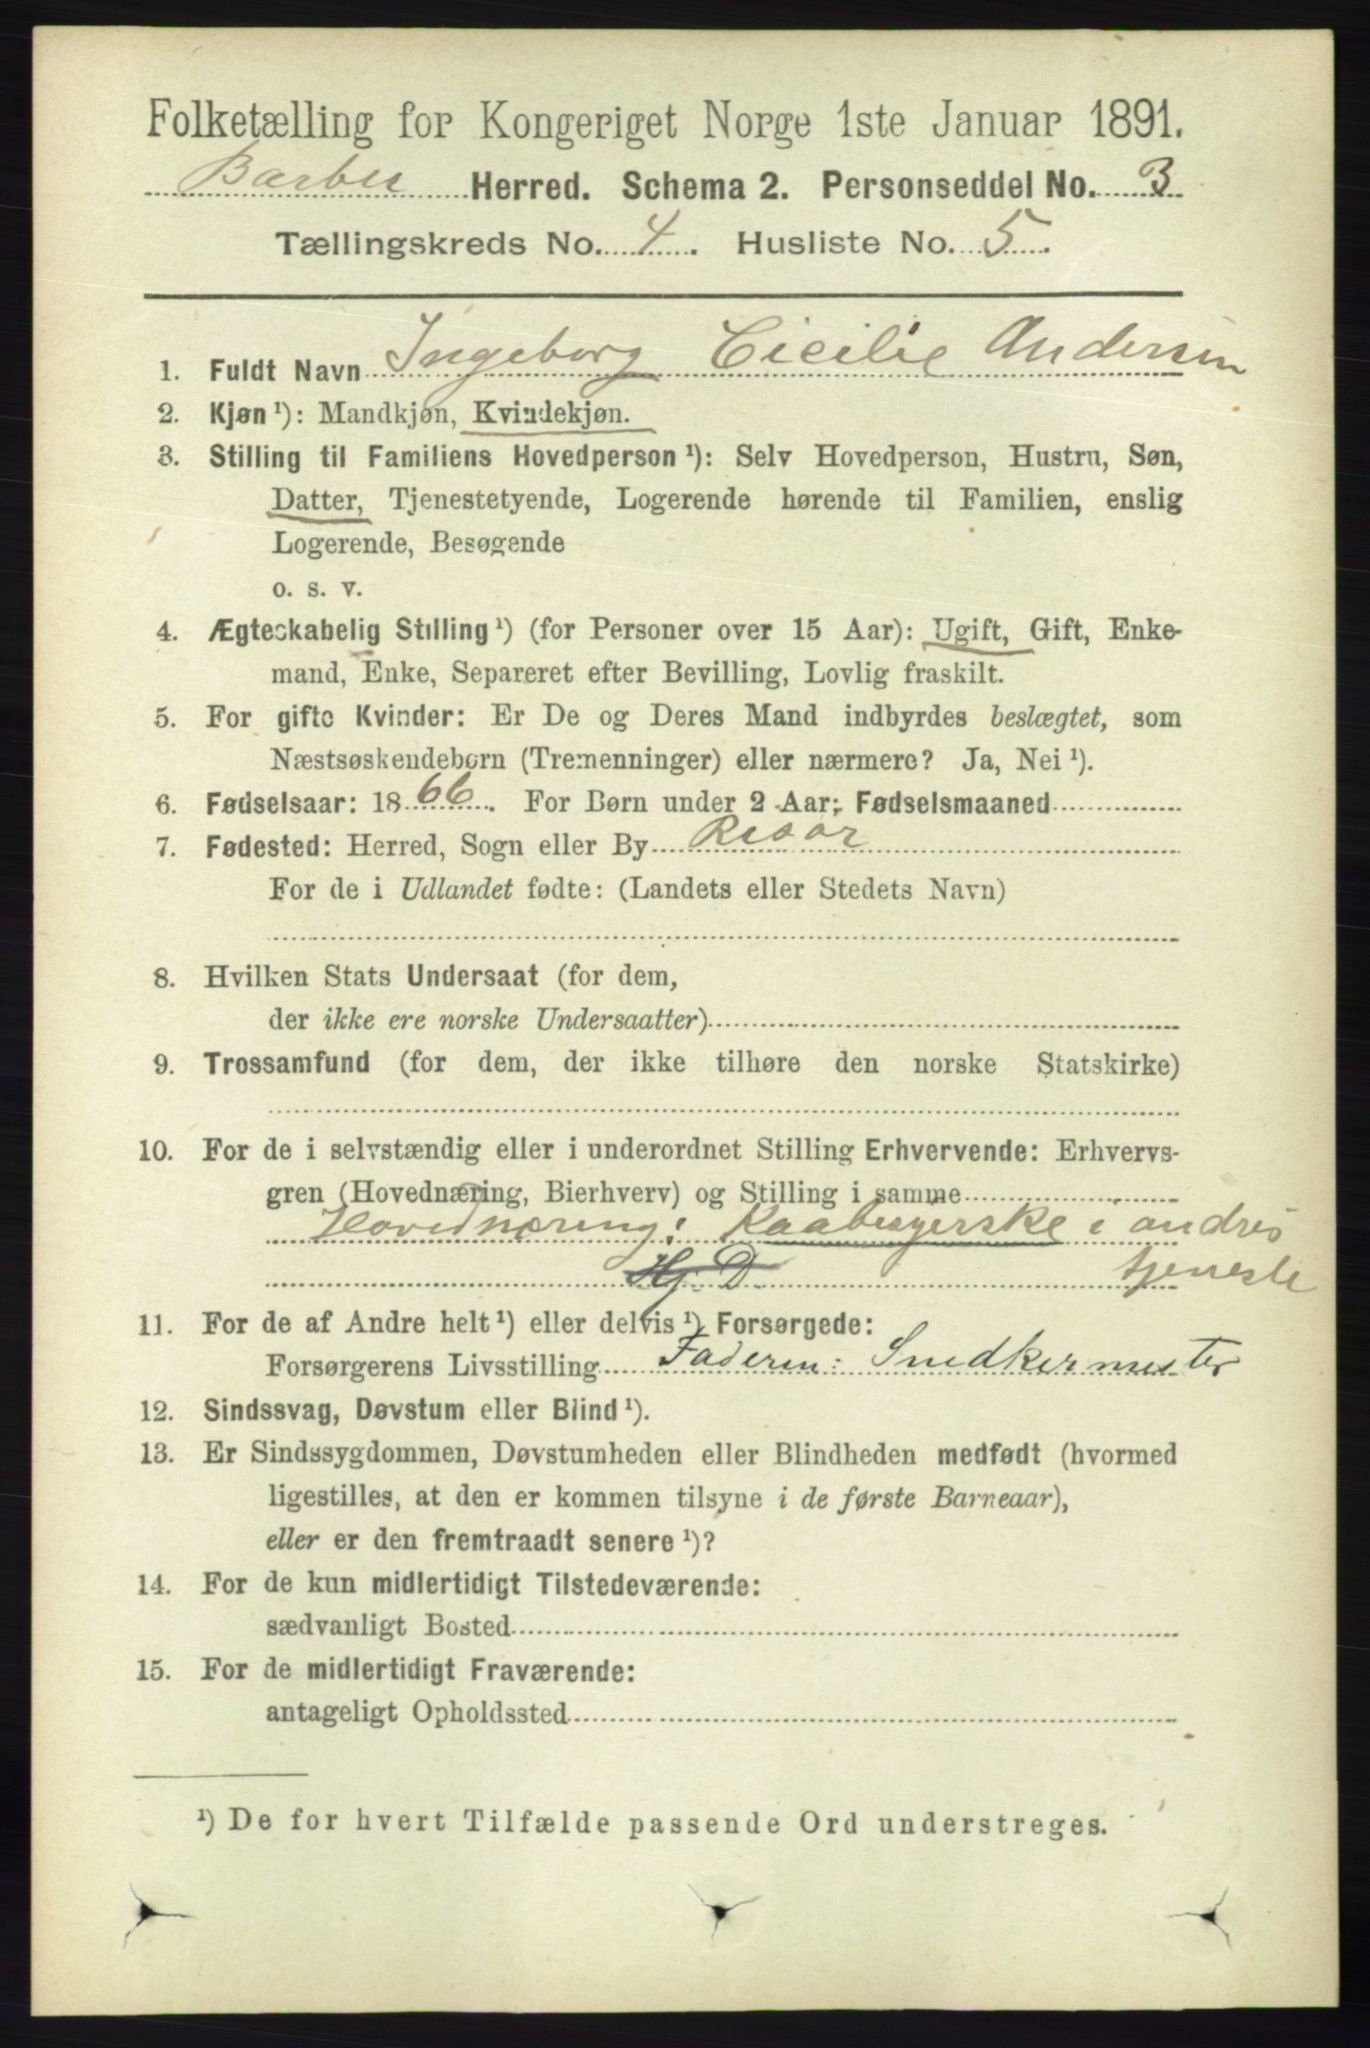 Folketælling for Kongeriget Norge 1ste Januar 1891.
Barbu Herred. Schema 2. Personseddel No. 3
Tællingskreds No. 4. Husliste No. 5.
1. Fuldt Navn Ingeborg Cicilie Andersen
2. Kjøn ¹): Mandkjøn, Kvindekjøn.
3. Stilling til Familiens Hovedperson ¹): Selv Hovedperson, Hustru, Søn,
Datter, Tjenestetyende, Logerende hørende til Familien, enslig
Logerende, Besøgende
o. s. v.
4. Ægteskabelig Stilling ¹) (for Personer over 15 Aar): Ugift, Gift, Enke-
mand, Enke, Separeret efter Bevilling, Lovlig fraskilt.
5. For gifte Kvinder: Er De og Deres Mand indbyrdes beslægtet, som
Næstsøskendebørn (Tremenninger) eller nærmere? Ja, Nei ¹).
6. Fødselsaar: 1866. For Børn under 2 Aar: Fødselsmaaned
7. Fødested: Herred, Sogn eller By Risør
For de i Udlandet fødte: (Landets eller Stedets Navn)
8. Hvilken Stats Undersaat (for dem,
der ikke ere norske Undersaatter)
9. Trossamfund (for dem, der ikke tilhøre den norske Statskirke)
10. For de i selvstændig eller i underordnet Stilling Erhvervende: Erhvervs-
gren (Hovednæring, Bierhverv) og Stilling i samme
Hovednæring: Kaabesyerske i andres
Hj. D tjeneste
11. For de af Andre helt ¹) eller delvis ¹) Forsørgede:
Forsørgerens Livsstilling Faderen: Snedkermester
12. Sindssvag, Døvstum eller Blind ¹).
13. Er Sindssygdommen, Døvstumheden eller Blindheden medfødt (hvormed
ligestilles, at den er kommen tilsyne i de første Barneaar),
eller er den fremtraadt senere ¹)?
14. For de kun midlertidigt Tilstedeværende:
sædvanligt Bosted
15. For de midlertidigt Fraværende:
antageligt Opholdssted
¹) De for hvert Tilfælde passende Ord understreges.